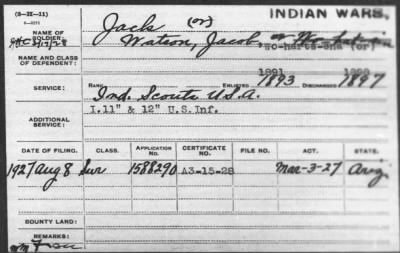 (3-2E-11)
INDIAN WARS.
Jack (or)
NAME OF SOLDIER:
Watson, Jacob,
Wo-harta-eha (or)
NAME AND CLASS OF DEPENDENT:
1891
SERVICE:
RANK
ENLISTED 1893 DISCHARGED 1897
Ind. Scouts U.S.A.
I.11" & 12" U.S.Inf.
ADDITIONAL SERVICE:
DATE OF FILING. CLASS. APPLICATION NO. CERTIFICATE NO. FILE NO. ACT. STATE.
1927 Aug 8 Sur 1588290 A3-15-28 Mar-3-27 Ariz
BOUNTY LAND:
REMARKS: